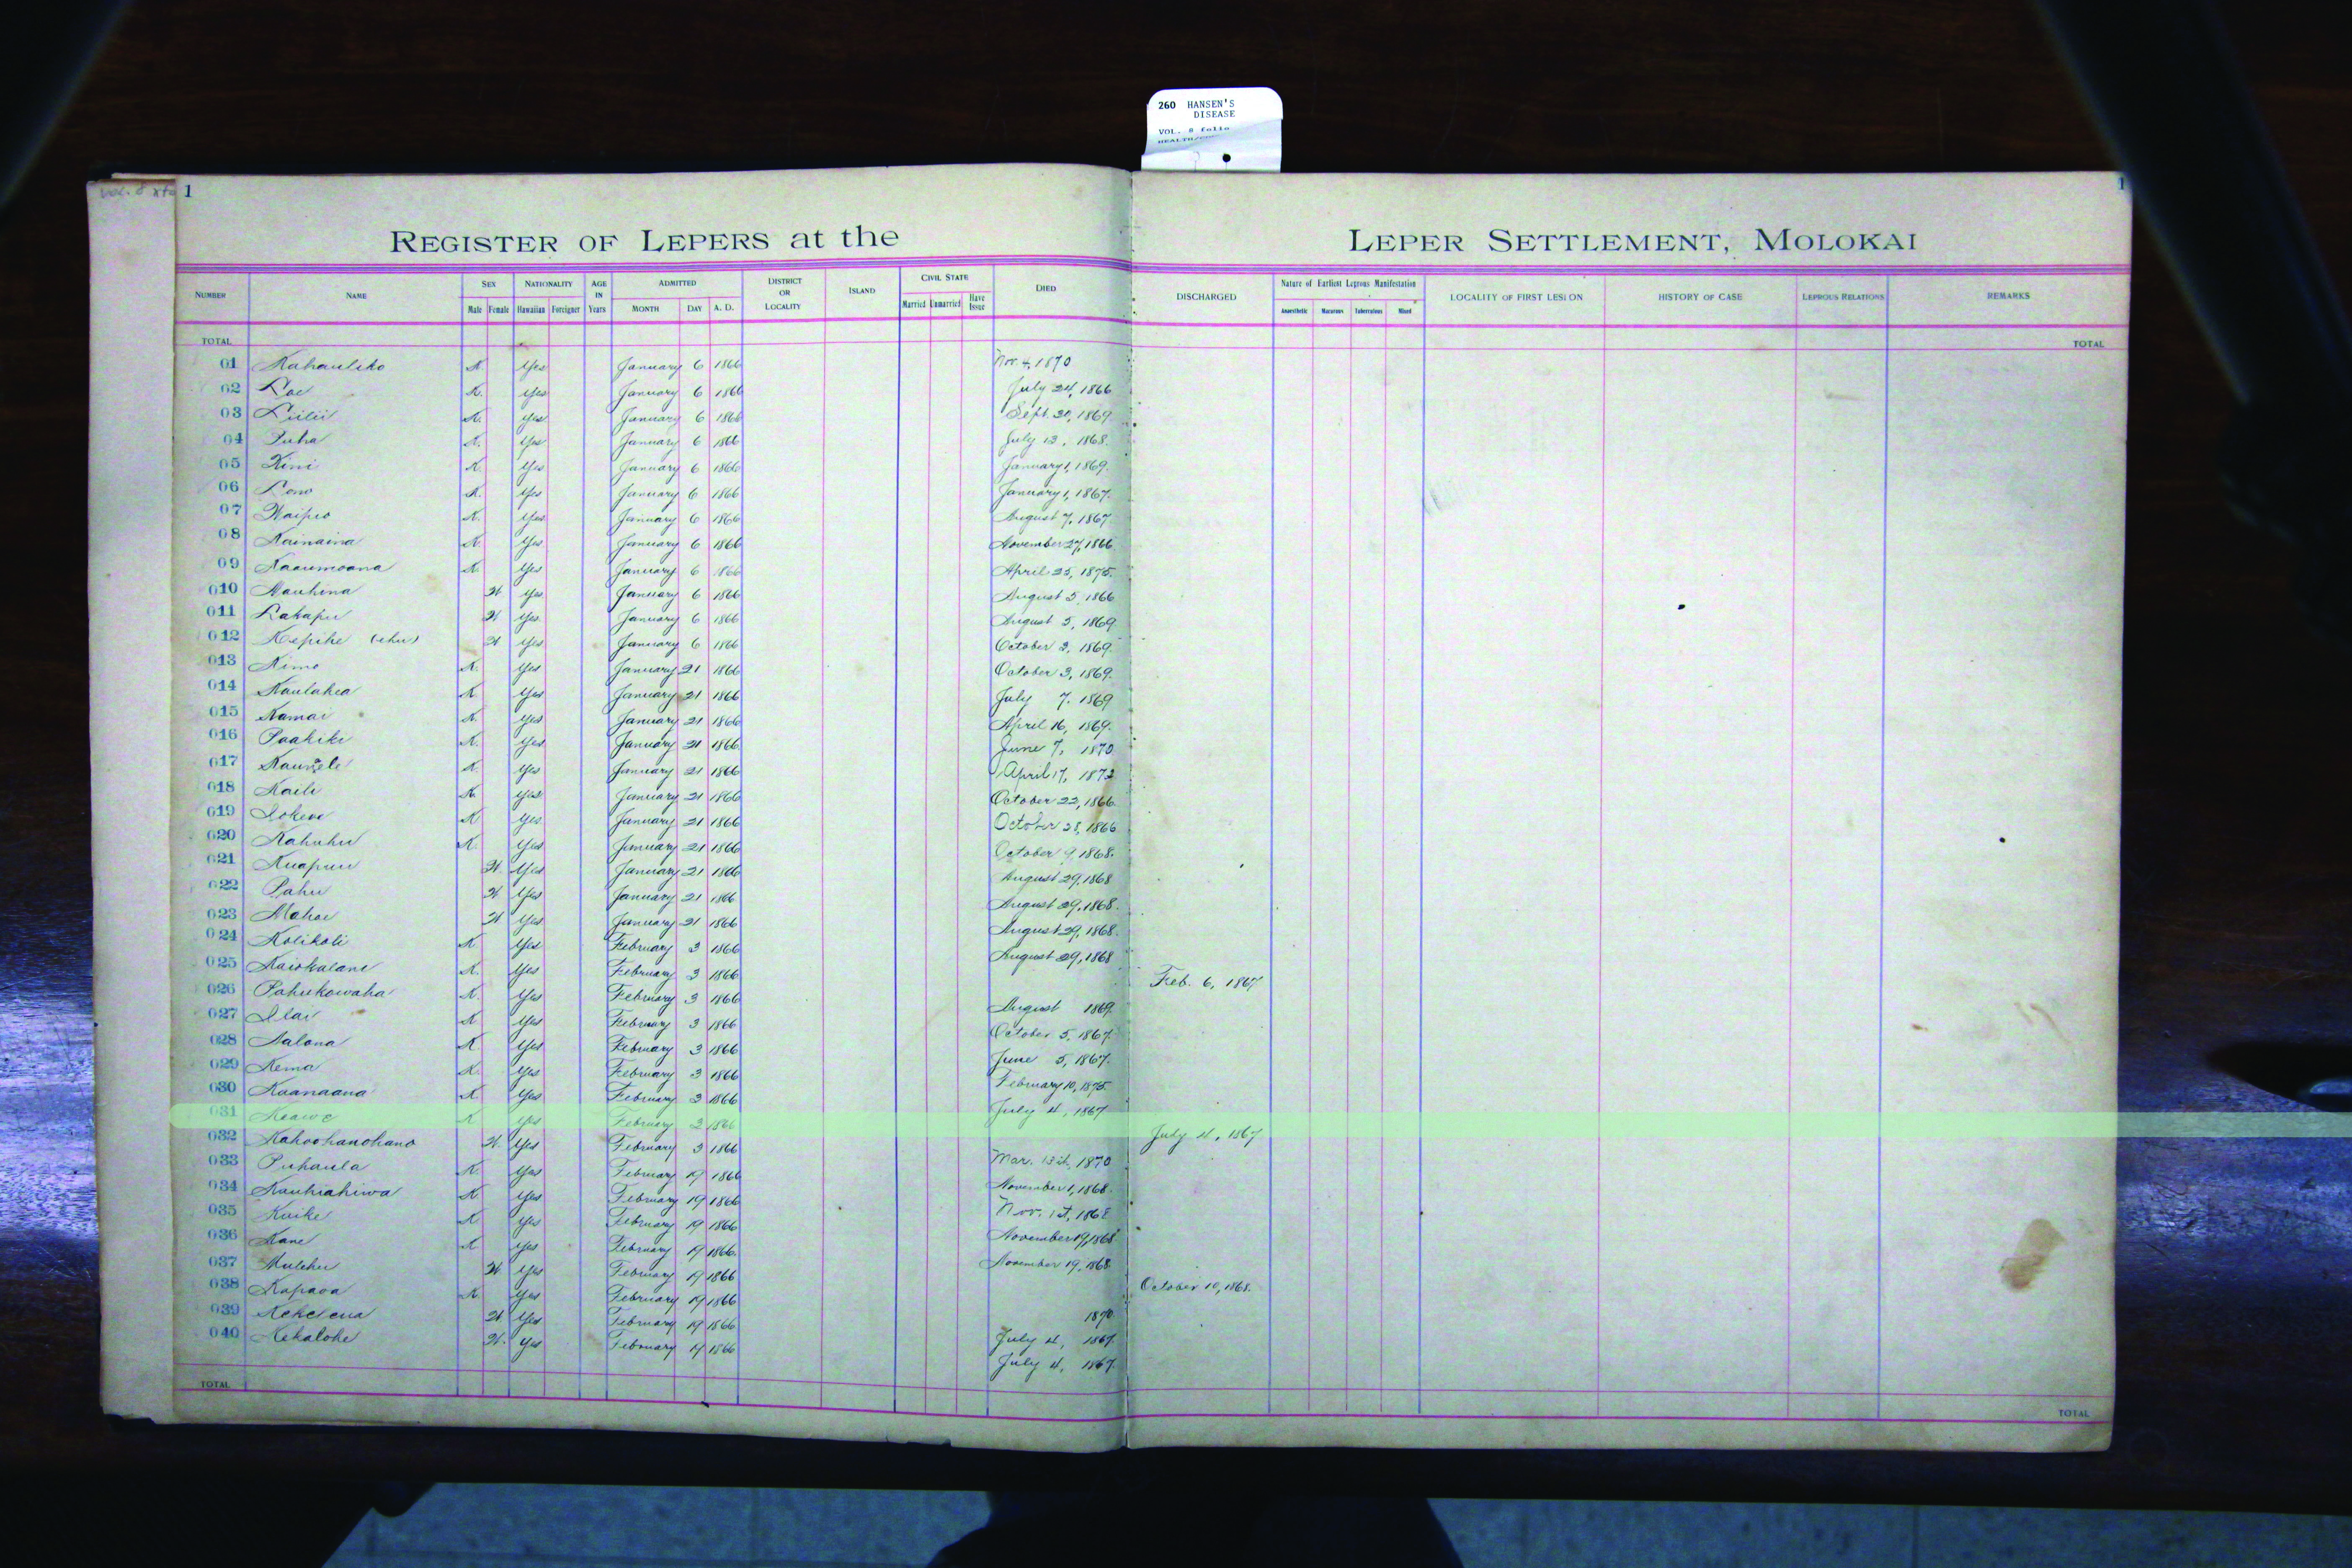 260 HANSEN'S
DISEASE
VOL. 8 folio
vol. 8
1
1
REGISTER OF LEPERS at the LEPER SETTLEMENT, MOLOKAI
NUMBER NAME SEX Male Female NATIONALITY Hawaiian Foreigner AGE IN Years ADMITTED MONTH DAY A. D. DISTRICT OR LOCALITY ISLAND CIVIL STATE Married Unmarried Have Issue DIED DISCHARGED Nature of Earliest Leprous Manifestation Anaesthetic Macurous Tuberculous Mixed LOCALITY OF FIRST LESION HISTORY OF CASE LEPROUS RELATIONS REMARKS
TOTAL TOTAL
01 Kahauliko K. Yes January 6 1866 Nov. 4, 1870
02 Loe K. Yes January 6 1866 July 24, 1866
03 Liilii K. Yes January 6 1866 Sept. 20, 1869
04 Puha K. Yes January 6 1866 July 13, 1868.
05 Kini K. Yes January 6 1866 January 1, 1869.
06 Lono K. Yes January 6 1866 January 1, 1867.
07 Waipio K. Yes January 6 1866 August 7, 1867
08 Kainaina K. Yes January 6 1866 November 27, 1866
09 Kaaumoana K. Yes January 6 1866 April 25, 1875.
010 Nauhina W Yes January 6 1866 August 5, 1866
011 Lakapu W Yes January 6 1866 August 5, 1869
012 Kepihe (ehu) W Yes January 6 1866 October 3, 1869.
013 Kimo K. Yes January 21 1866 October 3, 1869.
014 Kaulahea K Yes January 21 1866 July 7, 1869
015 Kamai K. Yes January 21 1866 April 16, 1869.
016 Paakiki K. Yes January 21 1866 June 7, 1870
017 K. Yes January 21 1866 April 17, 1872
018 Kaili K. Yes January 21 1866 October 22, 1866
019 Iokewe K Yes January 21 1866 October 28, 1866
020 Kahuhu K. Yes January 21 1866 October 9, 1868.
021 Kuapuu W. Yes January 21 1866 August 29, 1868
022 Pahu W Yes January 21 1866 August 29, 1868.
023 Mahoe W Yes January 21 1866 August 29, 1868.
024 Kolikoli K Yes February 3 1866 August 29, 1868
025 Kaiokalani K. Yes February 3 1866 Feb. 6, 1867
026 Pahukowaha K. Yes February 3 1866 August 1869
027 Ilai K Yes February 3 1866 October 5, 1867
028 Nalona K Yes February 3 1866 June 5, 1867.
029 Kema K. Yes February 3 1866 February 10, 1875
030 Kaanaana K Yes February 3 1866 July 4, 1867
031 Keawe K Yes February 3 1866 July 4, 1867
032 Kahoohanohano W. Yes February 3 1866 Mar. 13th, 1870
033 Puhaula K. Yes February 19 1866 November 1, 1868.
034 Kauhiahiwa K Yes February 19 1866 Nov. 1st, 1868
035 Kuike K Yes February 19 1866 November 19, 1868
036 Kane K Yes February 19 1866 November 19, 1868
037 W. Yes February 19 1866 October 10, 1868.
038 Kapaoa K. Yes February 19 1866 1870
039 Kekelena W Yes February 19 1866 July 4, 1867.
040 Kekalohe W. Yes February 19 1866 July 4, 1867.
TOTAL TOTAL